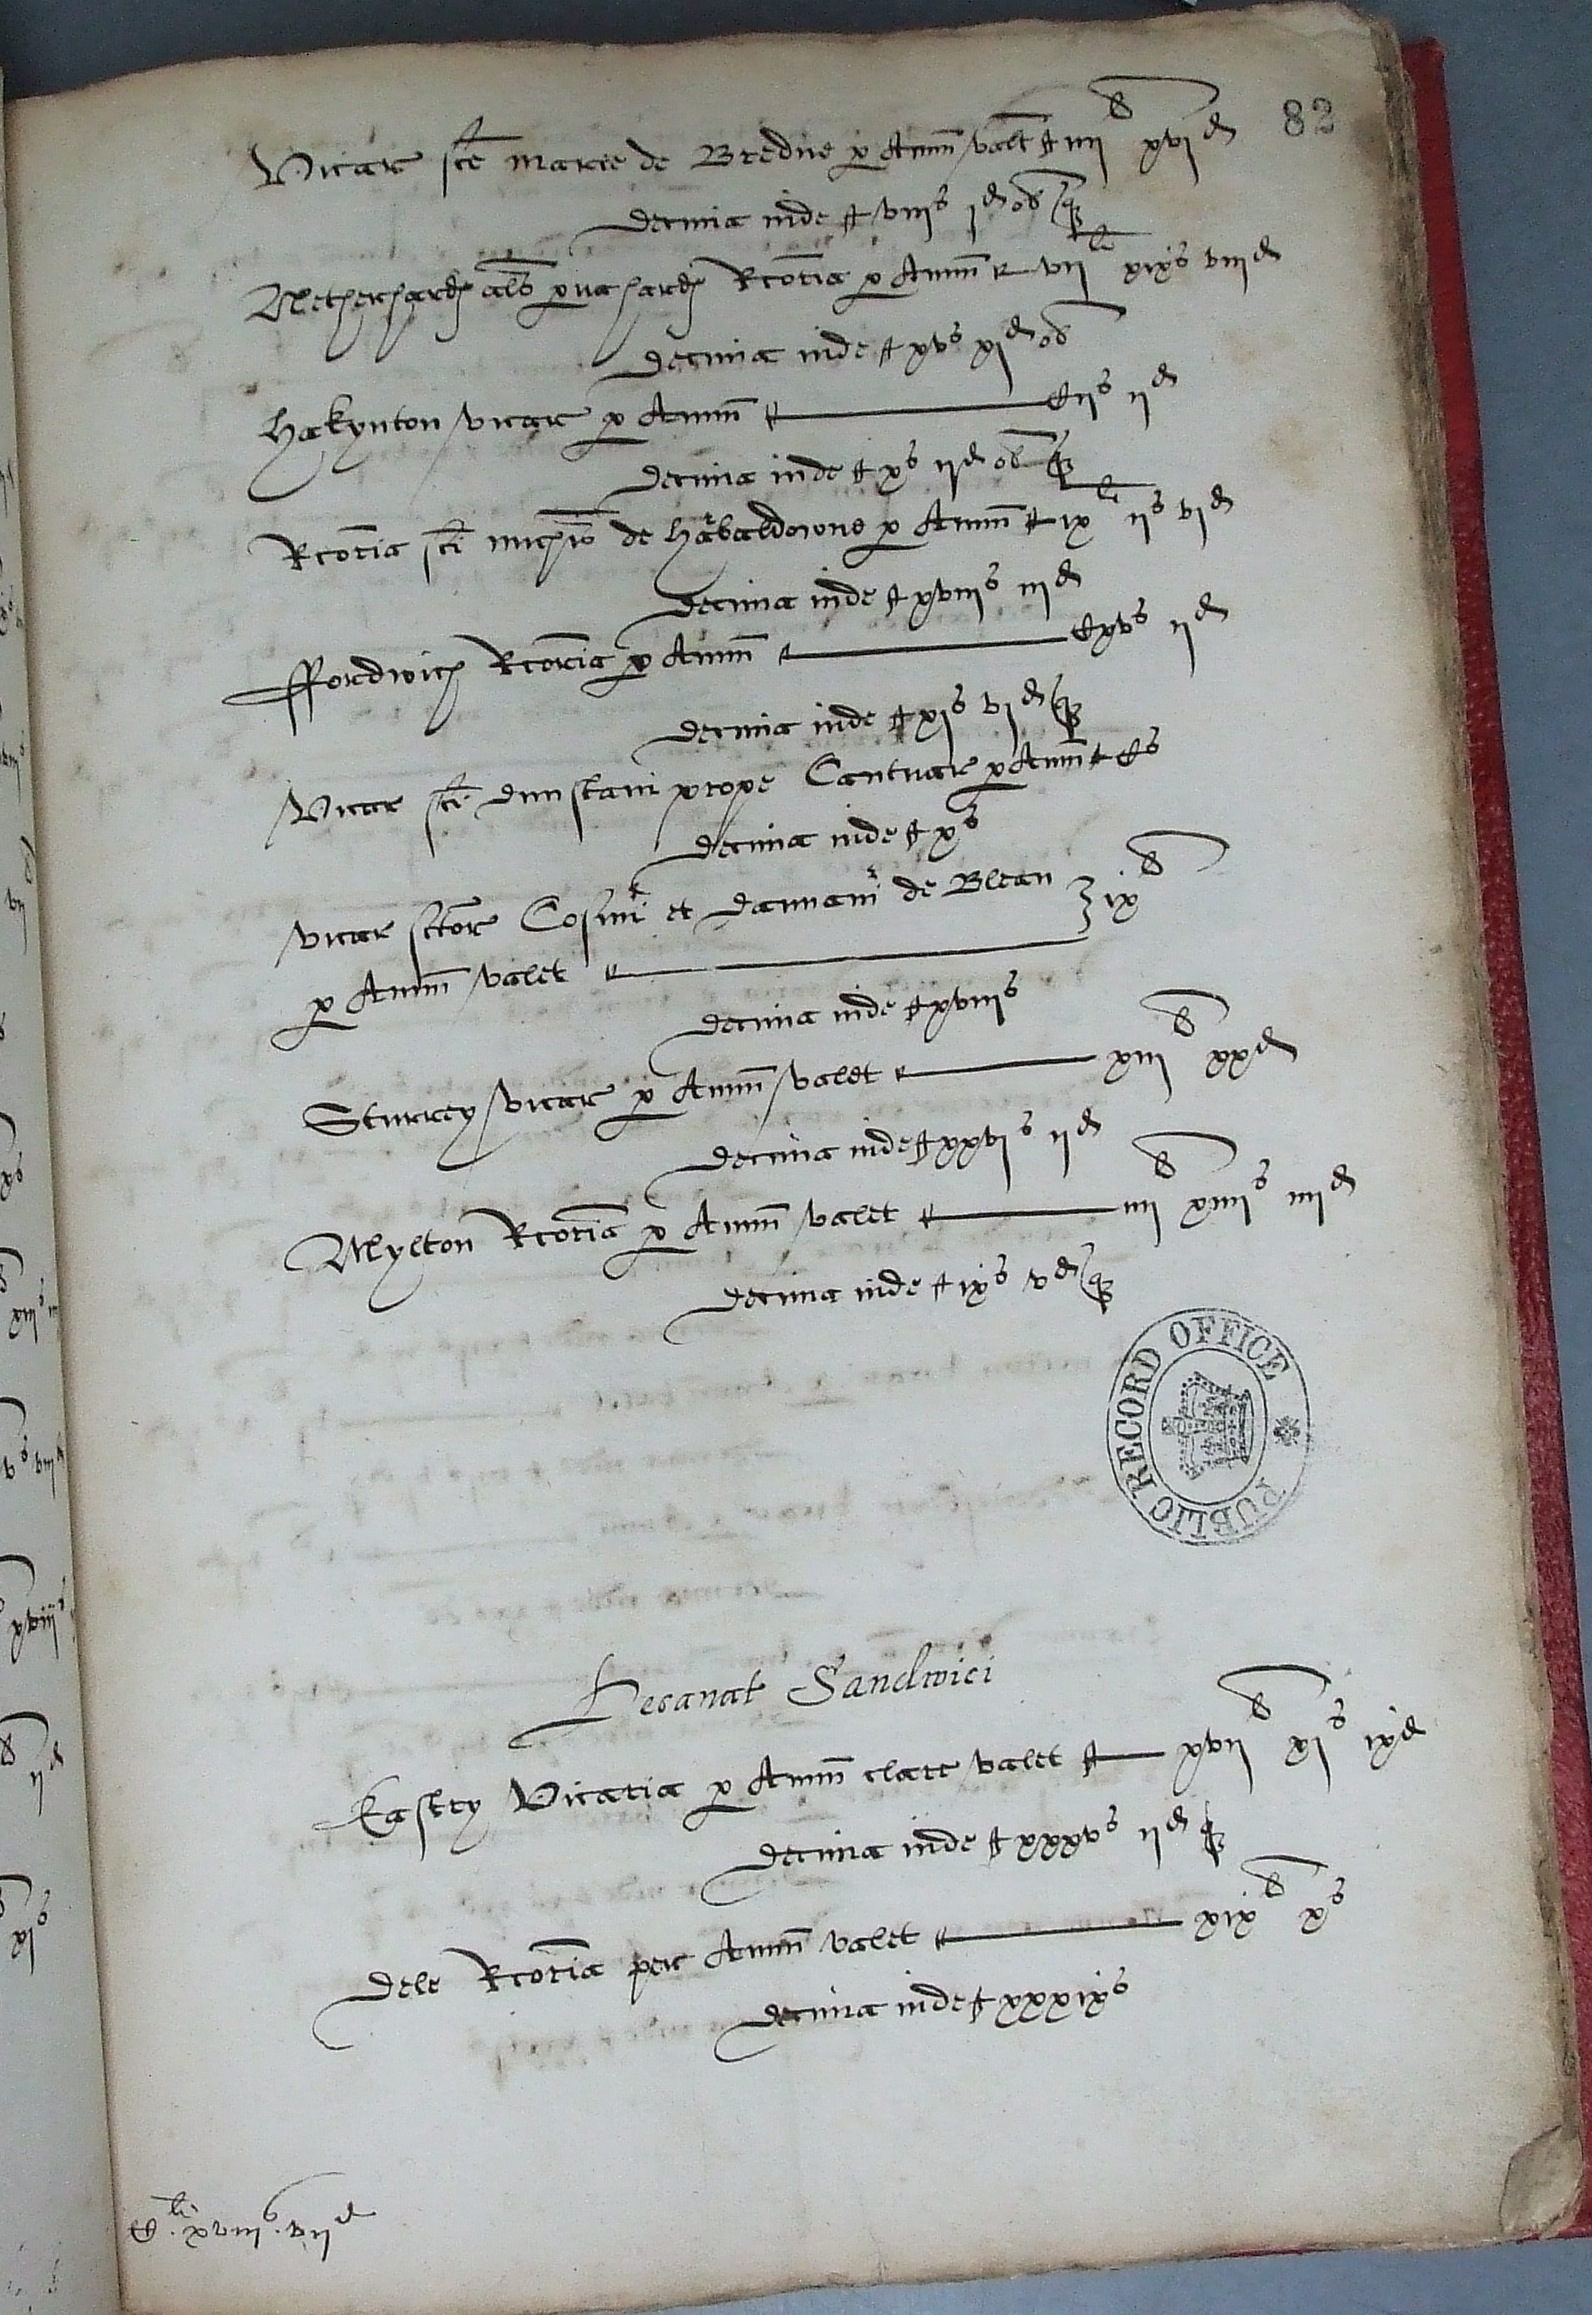 82
Vicar scē marie de Bredne p Annū valt iiii li xvi d
decima inde viii s i d ob q
Netherhardȝ als pva hardȝ Rcoria p Annū vii li xix s viii d
decima inde xv s xi d ob
hakynton vicar p Annū cii s ii d
decima inde x s ii d ob q
Rcoria sci michis de harbaldowne p Annū ix li ii s vi d
decima inde xviii s iii d
ffordwich Rcoria p Annū cxv s ii d
decima inde xi s vi d q
Vicar sci dunstani prope Cantuar p Annū c s
decima inde x s
vicar sctor Cosmi et damiani de Blean ix li
p Annū valet
decima inde xviii s
Sturrey vicar p Annū valet xiii li xx d
decima inde xxvi s ii d
Mylton Rcoria p Annū valet iiii li xiiii s iiii d
decima inde ix s v d q
PUBLIC RECORD OFFICE
Decanat Sandwici
Eastry Vicaria p Annū clare valet xvii li xi s ix d
decima inde xxxv s ii d q
dele Rcoria per Annū valet xix li x s
decima inde xxxix s
li xviii s vii d